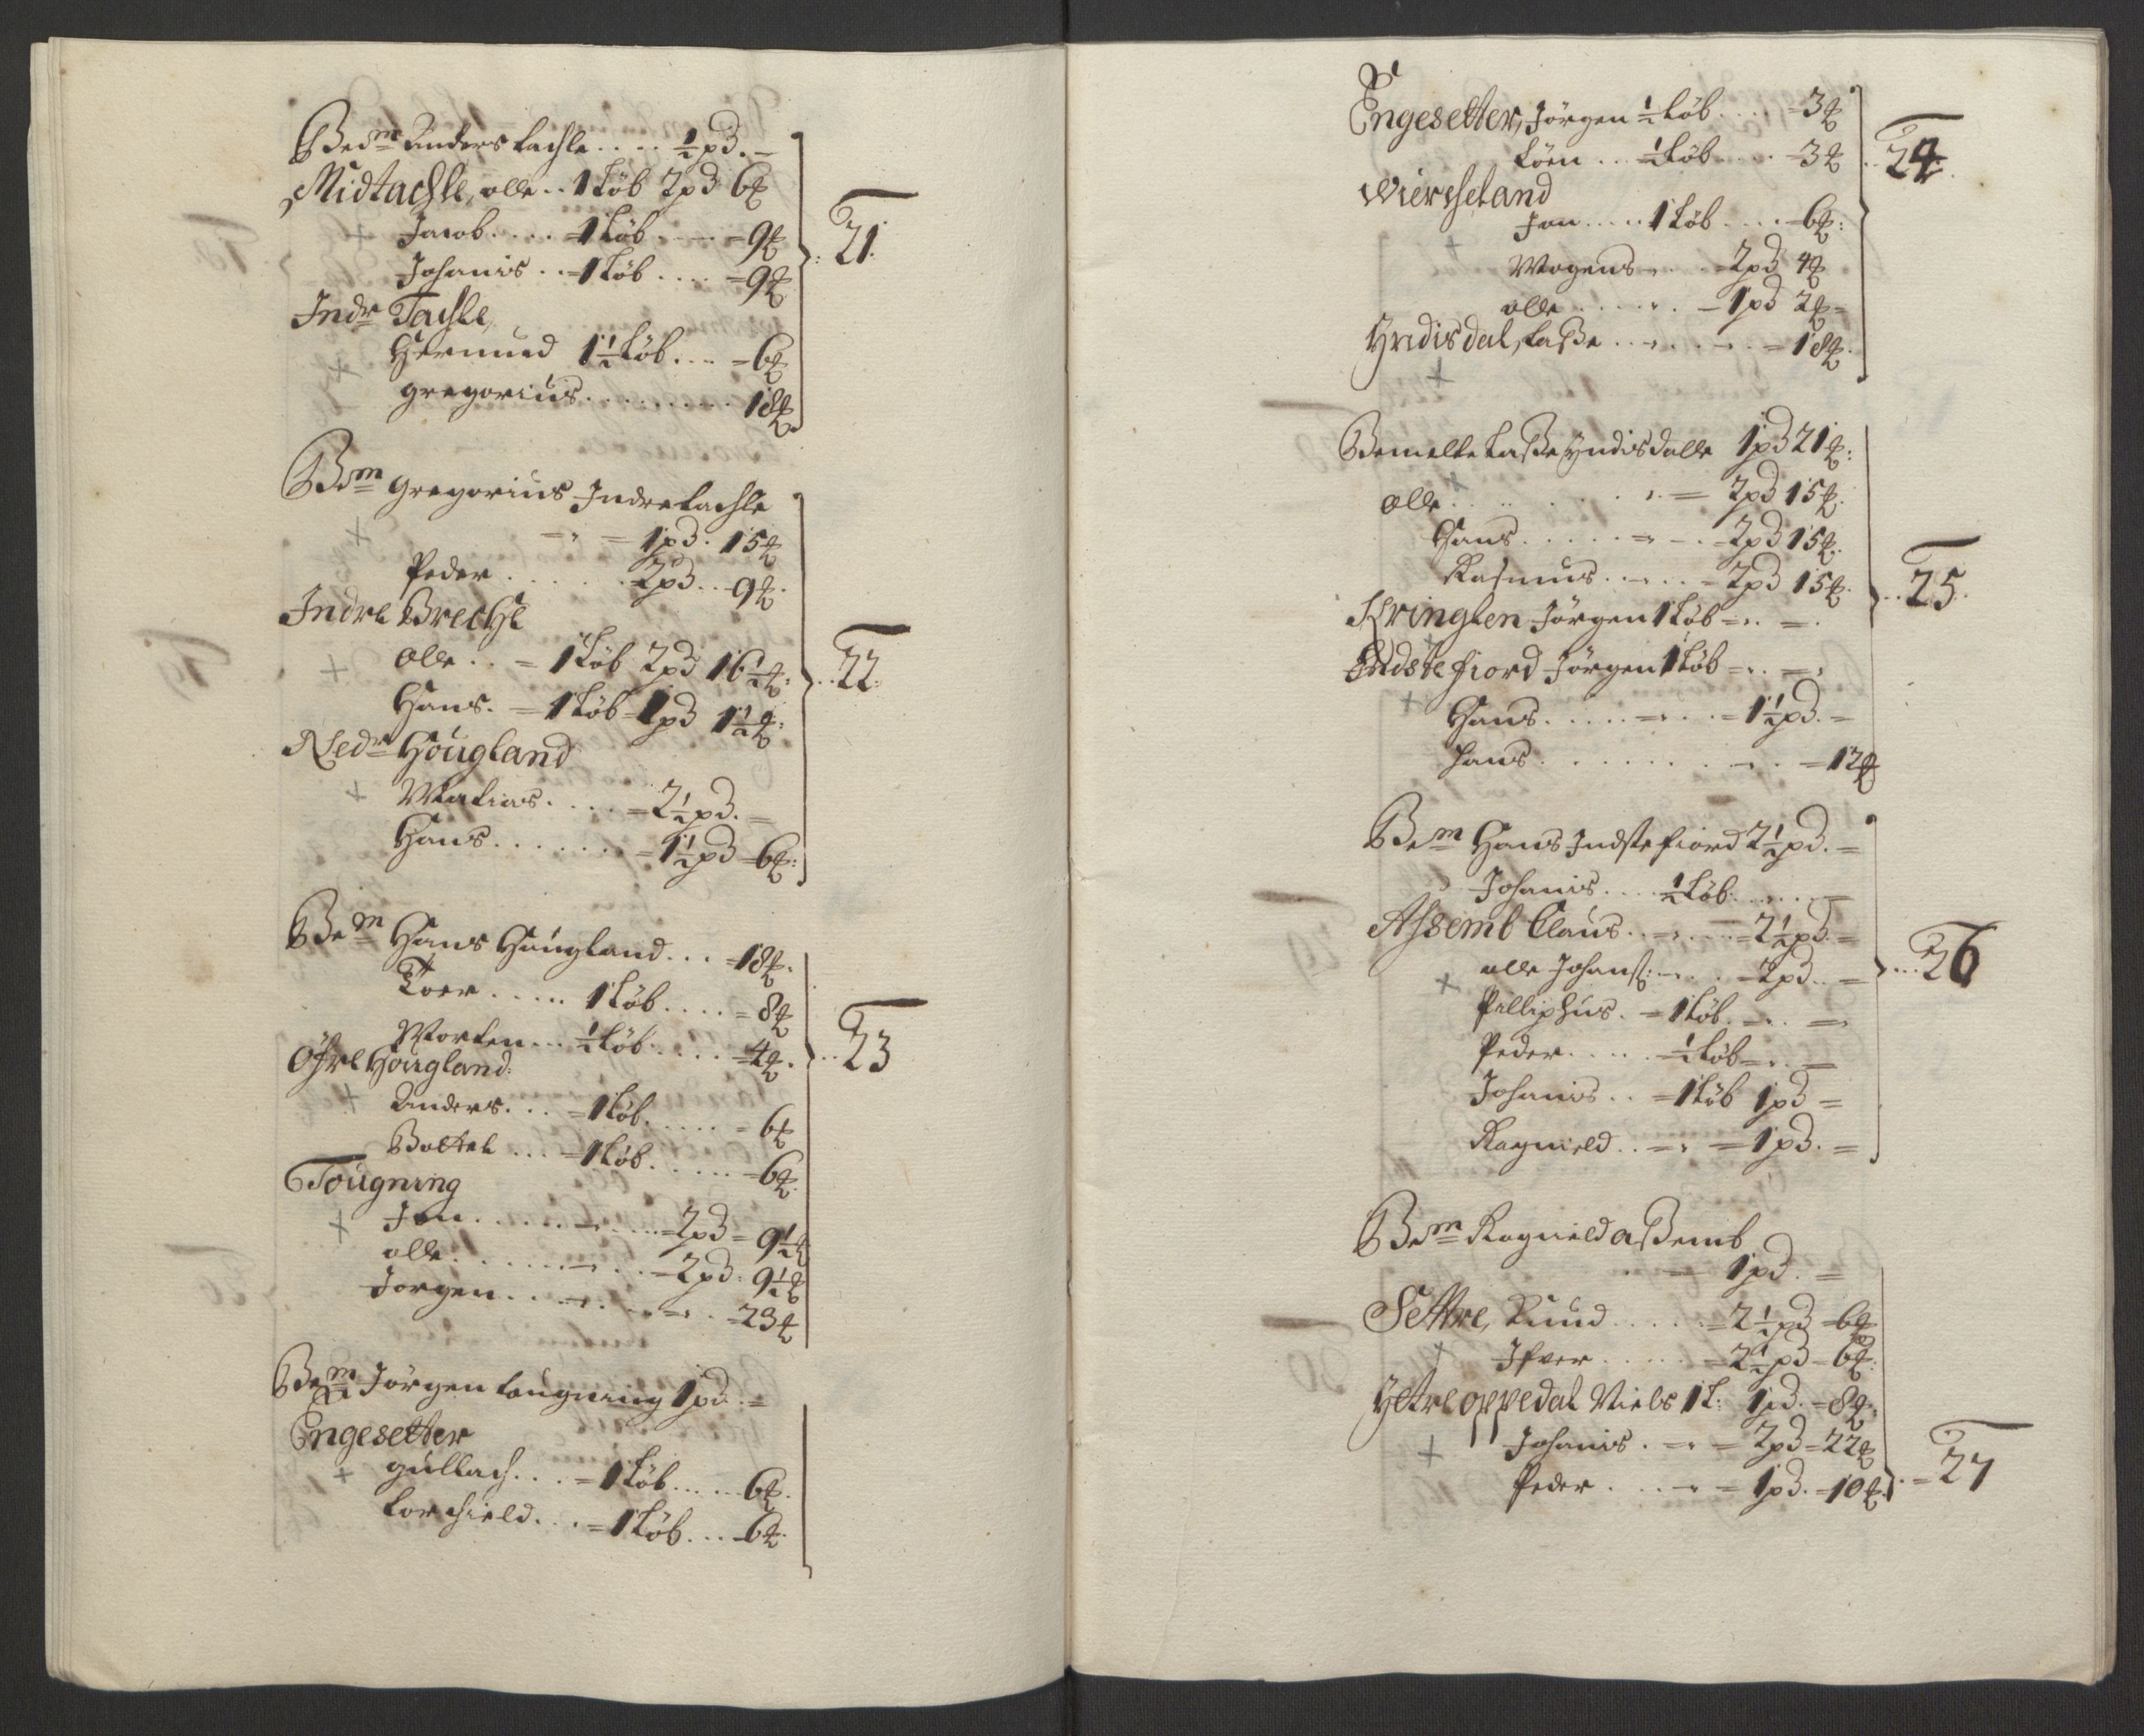 Bedm Anders tachle .... ½ pd. -
Midtachle, olle .. 1 Løb 2 pd 6 ℔
Jacob .... = 1 Løb .... = 9 ℔
Johanis .. = 1 Løb .... = 9 ℔
21.
Indr Tachle,
Hermund 1½ Løb ... = 6 ℔
gregorius ......... 18 ℔
Bdm gregorius Indre tachle
= 1 pd. 15 ℔
Peder ...... 2 pd .. 9 ℔.
Indre Breche
olle .. = 1 Løb 2 pd 16½ ℔:
22.
Hans. = 1 Løb 1 pd 1½ ℔:
Nedr Hougland
Matias .... = 2½ pd. =
Hans ...... = 1½ pd = 6 ℔:
Bem Hans Hougland ... = 18 ℔.
Toer ..... 1 Løb .... = 8 ℔
Morten ... ½ Løb .... = 4 ℔.
23
Øfre Hougland:
Anders ... = 1 Løb ..... = 6 ℔
Bottel ... = 1 Løb ..... = 6 ℔.
Tougning
Jon ....... = 2 pd = 9½ ℔
olle ....... = 2 pd: 9½ ℔
Jørgen ....... = 23 ℔
Bem Jørgen tougning 1 pd. =
Engesetter
gullach ... = 1 Løb .... 6 ℔.
torchield ... = 1 Løb ... 6 ℔.
Engesetter, Jørgen ½ Løb .... = 3 ℔
... ½ Løb .... = 3 ℔
24.
Wiercheland
Jon .... 1 Løb .... = 6 ℔:
Mogens .... = 2 pd 4 ℔
olle ...... = 1 pd 2 ℔ =
Yndisdal, Lasse ....... = 18 ℔.
Bemelte Lasse Yndisdalle 1 pd 21 ℔:
olle ....... = 2 pd 15 ℔.
Hans ..... = 2 pd 15 ℔.
Rasmus ..... = 2 pd 15 ℔.
25.
Kringlen Jørgen 1 Løb = .. =.
Indste fiord Jørgen 1 Løb = .. =:
Hans ....... = 1½ pd. =
Hans ......... = 12 ℔
Bem Hans Indste fiord 2½ pd. =
Johanis .... ½ Løb ..... =
Assemb Claus ..... = 2½ pd =
olle Johans: .... = 2 pd .. =
26
Pilliphus. = 1 Løb ... =
Peder ..... = ½ Løb = .. =
Johanis .. = 1 Løb 1 pd =
Ragnield .. = = 1 pd. =
Bem Ragnield assemb
= 1 pd. =
Settre, Knud ..... = 2½ pd = 6 ℔
Ifver ..... = 2½ pd = 6 ℔:
Yttre oppedal Niels 1 L: 1 pd. = 8 ℔:
Johanis . = = 2 pd = 22 ℔
Peder .... = 1 pd. = 10 ℔
27